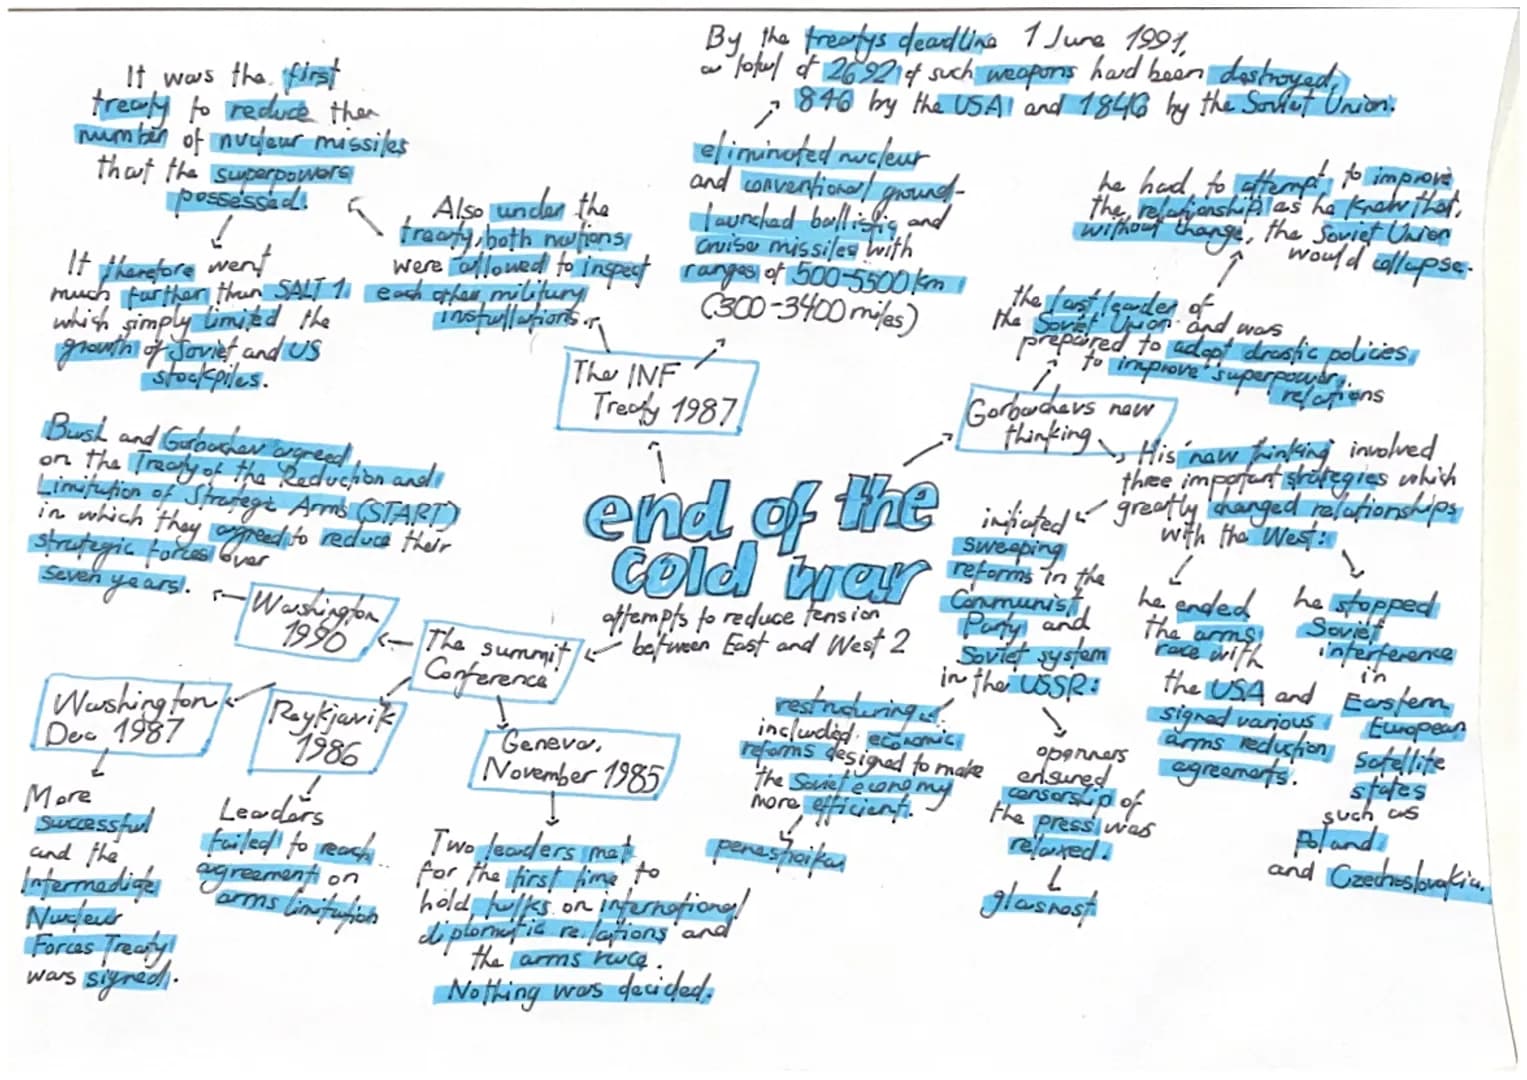 end of the
cold war
attempts to reduce tension
between East and West 2
The INF
Treaty 1987
eliminated nuclear
and conventional ground-
launched ballistic and
cruise missiles with
ranges of 500-5500km
(300-3400 miles)
By the treatys deadline 1 June 1991,
a total of 2692 of such weapons had been destroyed,
846 by the USA and 1846 by the Soviet Union.
Also under the
treaty, both nations
were allowed to inspect
each other military
installations.
It was the first
treaty to reduce the
number of nuclear missiles
that the superpowers
possessed.
It therefore went
much further than SALT 1
which simply limited the
growth of Soviet and US
stockpiles.
Gorbachevs new
thinking
the last leader of
the Soviet Union and was
prepared to adopt drastic policies
to improve superpower
relations
he had to attempt to improve
the relationship as he knew that,
without change, the Soviet Union
would collapse.
His 'new thinking' involved
three important strategies which
greatly changed relationships
with the West:
initiated
sweeping
reforms in the
Communist
Party and
Soviet system
in the USSR:
restructuring
included economic
reforms designed to make
the Soviet economy
more efficient.
perestroika
openness
ensured
censorship of
the press was
relaxed.
glasnost
he ended
the arms
race with
the USA and
signed various
arms reduction
agreements.
he stopped
Soviet
interference
in
Eastern
European
Satellite
states
such as
Poland
and Czechoslovakia.
The summit
Conference
Geneva,
November 1985
Two leaders met
for the first time to
hold talks on international
diplomatic relations and
the arms race.
Nothing was decided.
Reykjavik
1986
Leaders
failed to reach
agreement on
arms limitation
Washington
Dec 1987
More
successful
and the
Intermediate
Nuclear
Forces Treaty
was signed.
Washington
1990
Bush and Gorbachev agreed
on the Treaty of the Reduction and
Limitation of Strategic Arms (START)
in which they agreed to reduce their
strategic forces over
seven years.